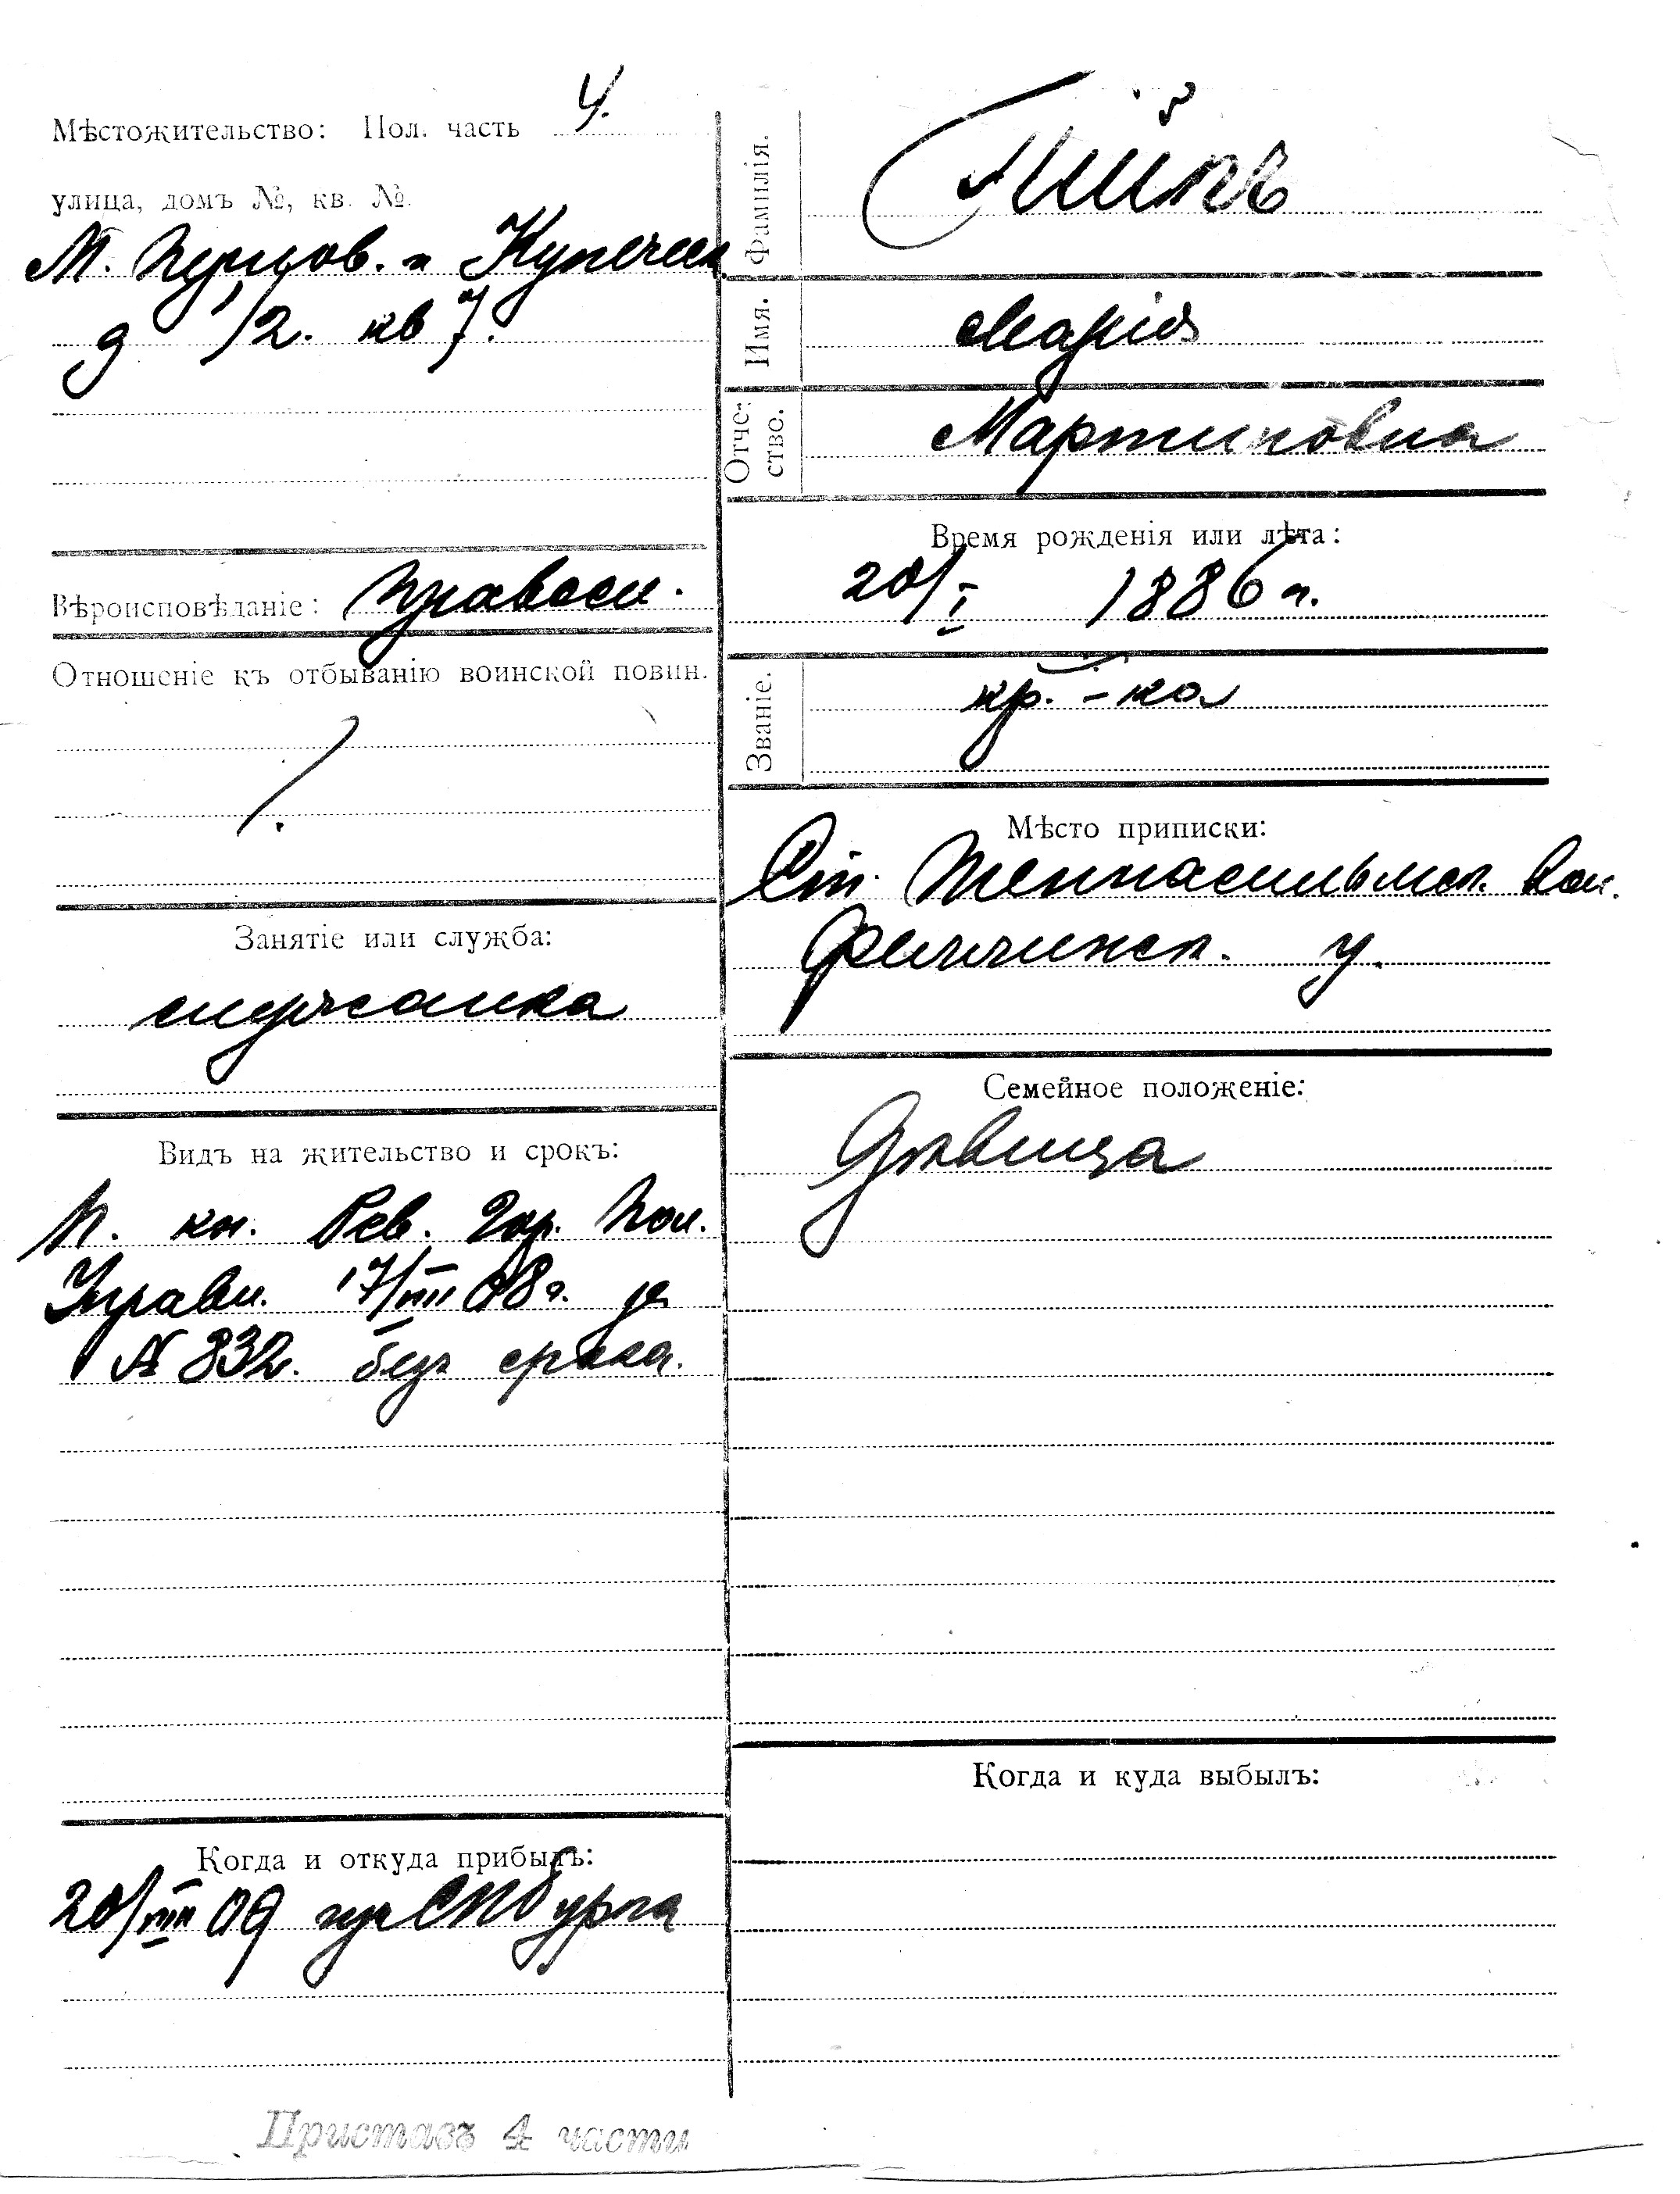 Мѣстожительство: Пол. часть 4.
улица, домъ №, кв. №
М. Перновск. и Купеческ
д 1/2. кв 7.
Вѣроисповѣданіе: Правосл.
Отношеніе къ отбыванію воинской повин.
Занятіе или служба:
служанка
Видъ на жительство и срокъ:
П. кн. Рев. Гор. Пол.
Управл. 17/VIII 08 г. за
№ 832. безъ срока.
Когда и откуда прибылъ:
20/VIII 09 изъ СПбурга
Фамилія.
Имя. Марія
Отче-
ство. Мартиновна
Время рожденія или лѣта:
20/I 1886 г.
Званіе. кр.-ка
Мѣсто приписки:
Ст. Теннасильмск. вол.
Феллинск. у.
Семейное положеніе:
Дѣвица
Когда и куда выбылъ:
Приставъ 4 части